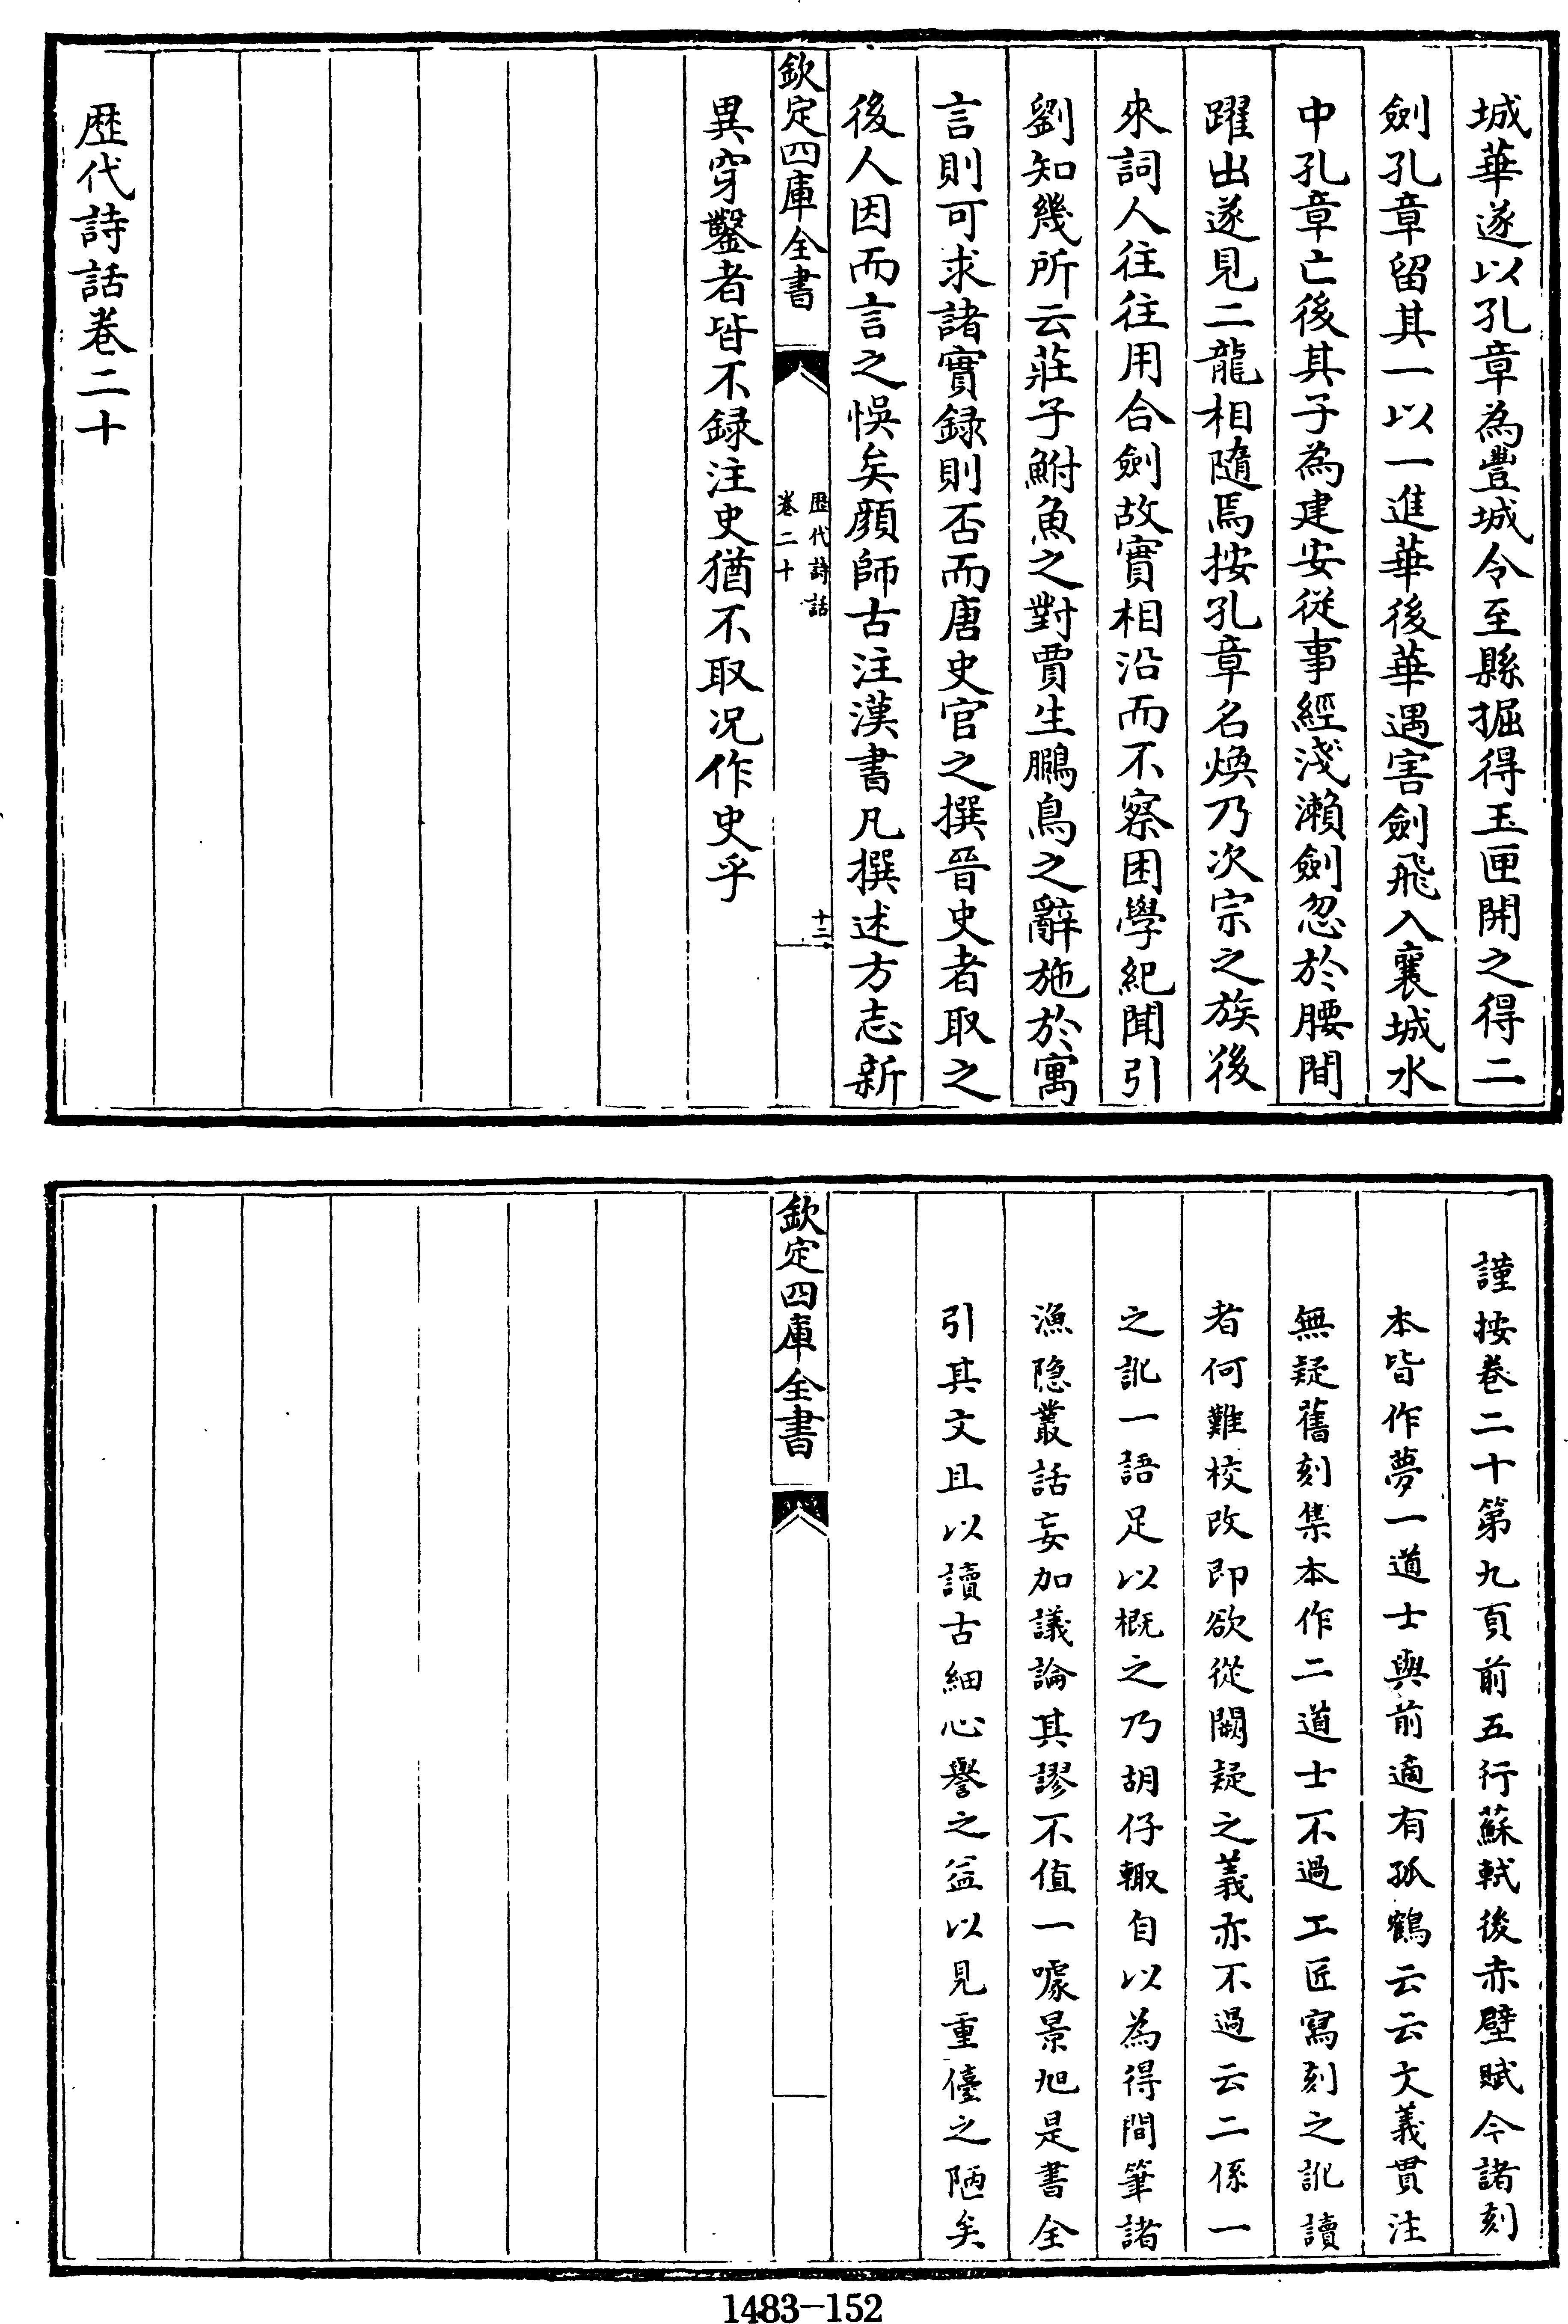 城華遂以孔章為豐城令至縣掘得玉匣開之得二
劍孔章留其一以一進華後華遇害劍飛入襄城水
中孔章亡後其子為建安從事經淺瀨劍忽於腰間
躍出遂見二龍相隨焉按孔章名煥乃次宗之族後
來詞人往往用合劍故實相沿而不察困學紀聞引
劉知幾所云莊子鮒魚之對賈生鵩鳥之辭施於寓
言則可求諸實録則否而唐史官之撰晉史者取之
後人因而言之悞矣顔師古注漢書凡撰述方志新
欽定四庫全書
歴代詩話
卷二十
十二
異穿鑿者皆不録注史猶不取况作史乎
歴代詩話卷二十
謹按卷二十第九頁前五行蘇軾後赤壁賦今諸刻
本皆作夢一道士與前適有孤鶴云云文義貫注
無疑舊刻集本作二道士不過工匠寫刻之訛讀
者何難校改即欲從闕疑之義亦不過云二係一
之訛一語足以概之乃胡仔輙自以為得間筆諸
漁隐叢話妄加議論其謬不值一噱景旭是書全
引其文且以讀古細心譽之益以見重儓之陋矣
欽定四庫全書
1483-152